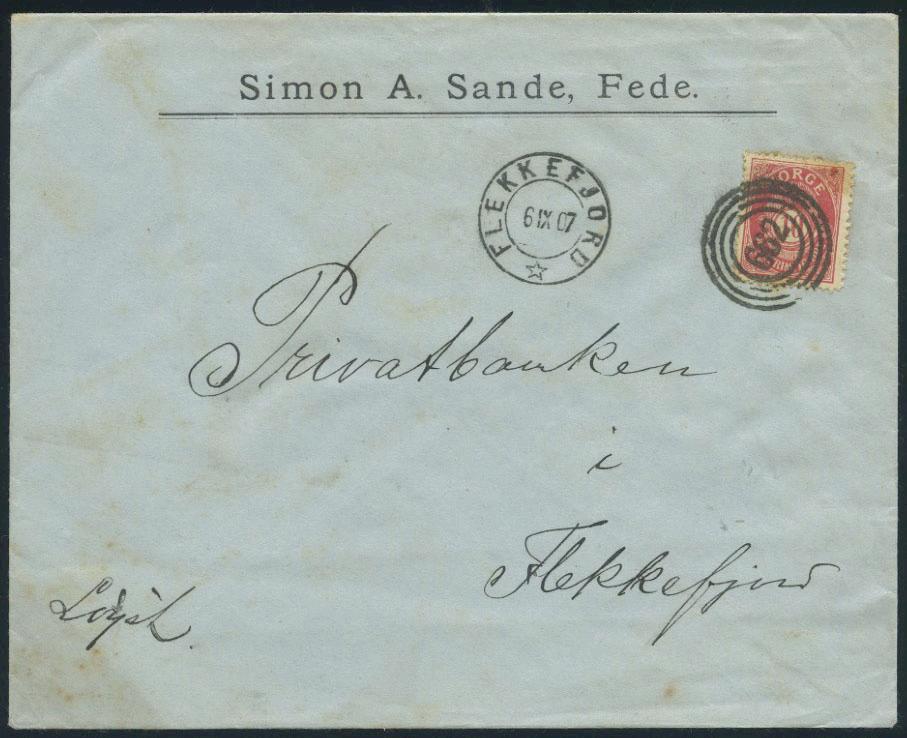 Simon A. Sande, Fede.
FLEKKEFJORD
6 IX 07
NORGE
10
662
Privatbanken
i
Flekkefjord